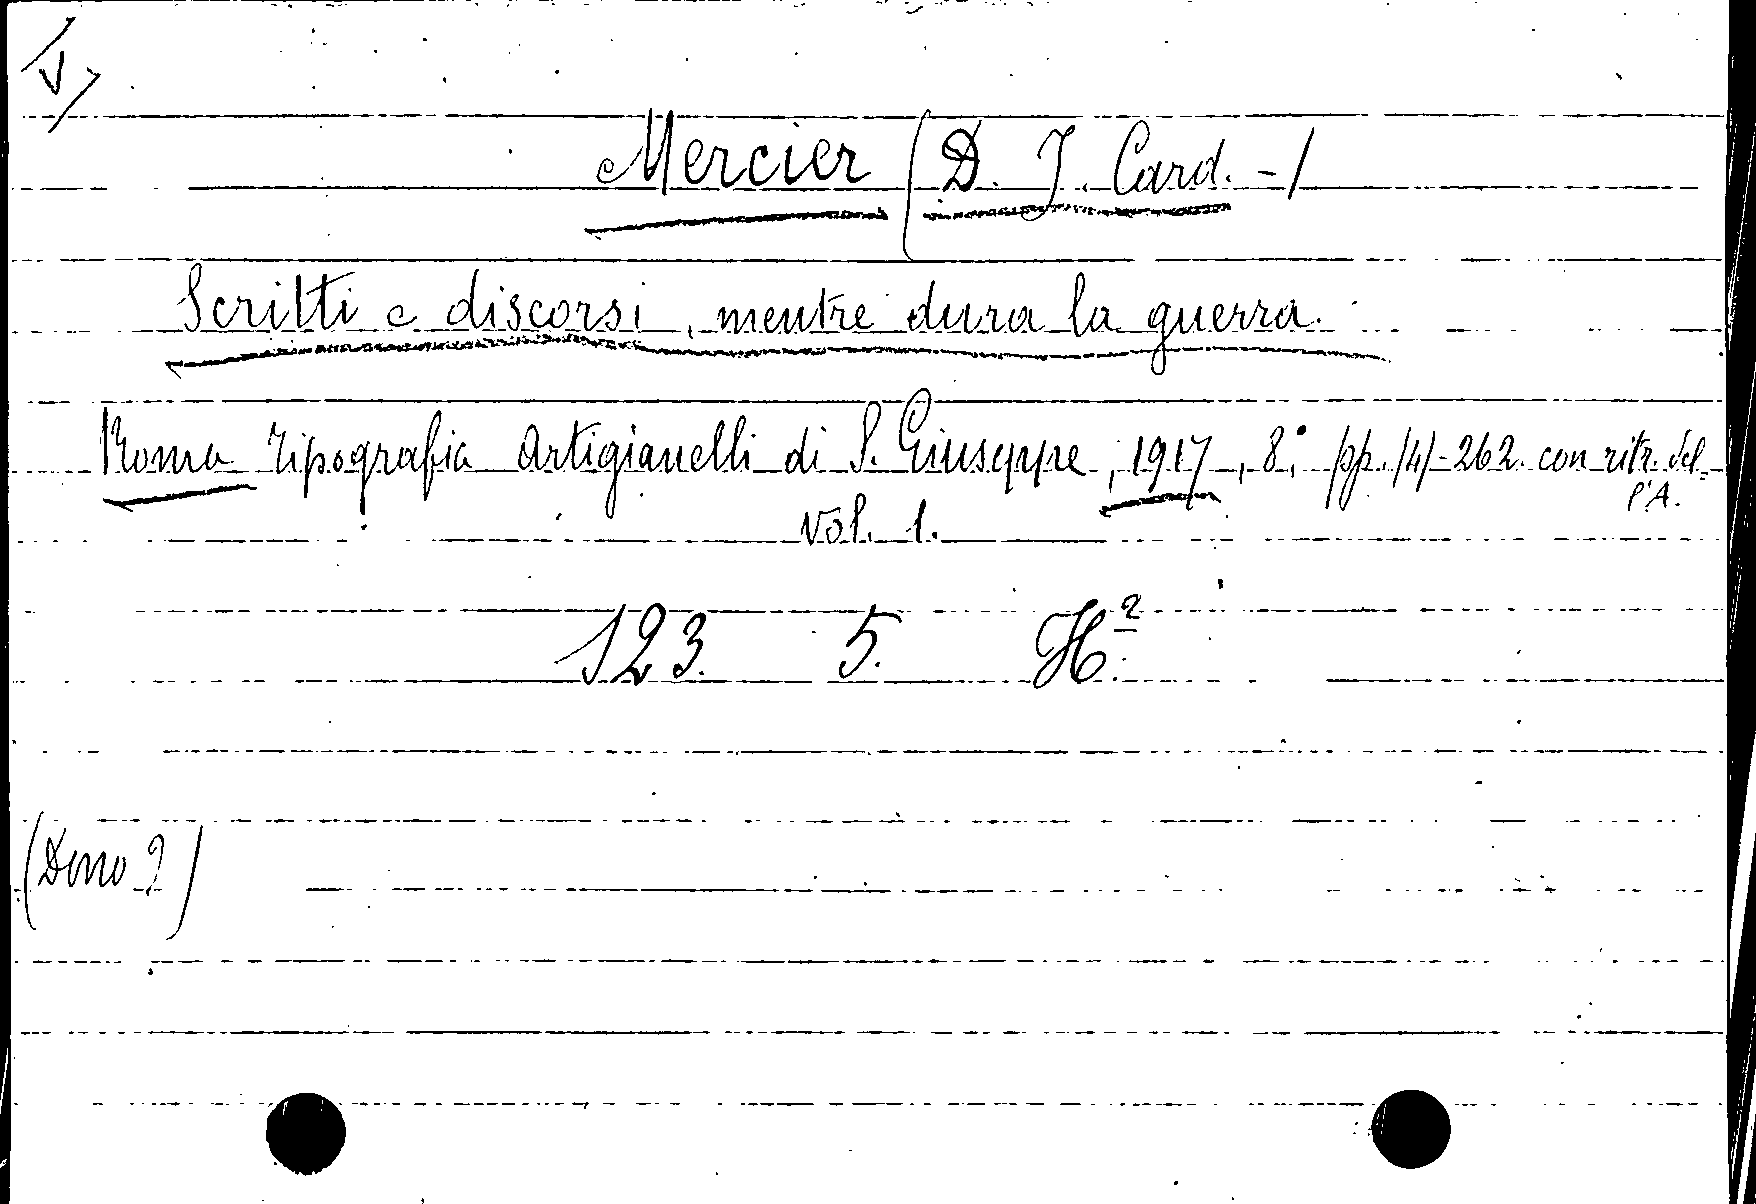 V
Mercier (D. J. Card. -/
Scritti e discorsi, mentre dura la guerra.
Roma Tipografia Artigianelli di S. Giuseppe, 1917, 8.° pp. /4/-262. con ritr. del-
l'A.
Vol. 1.
123. 5. H.²
(Dono ?)